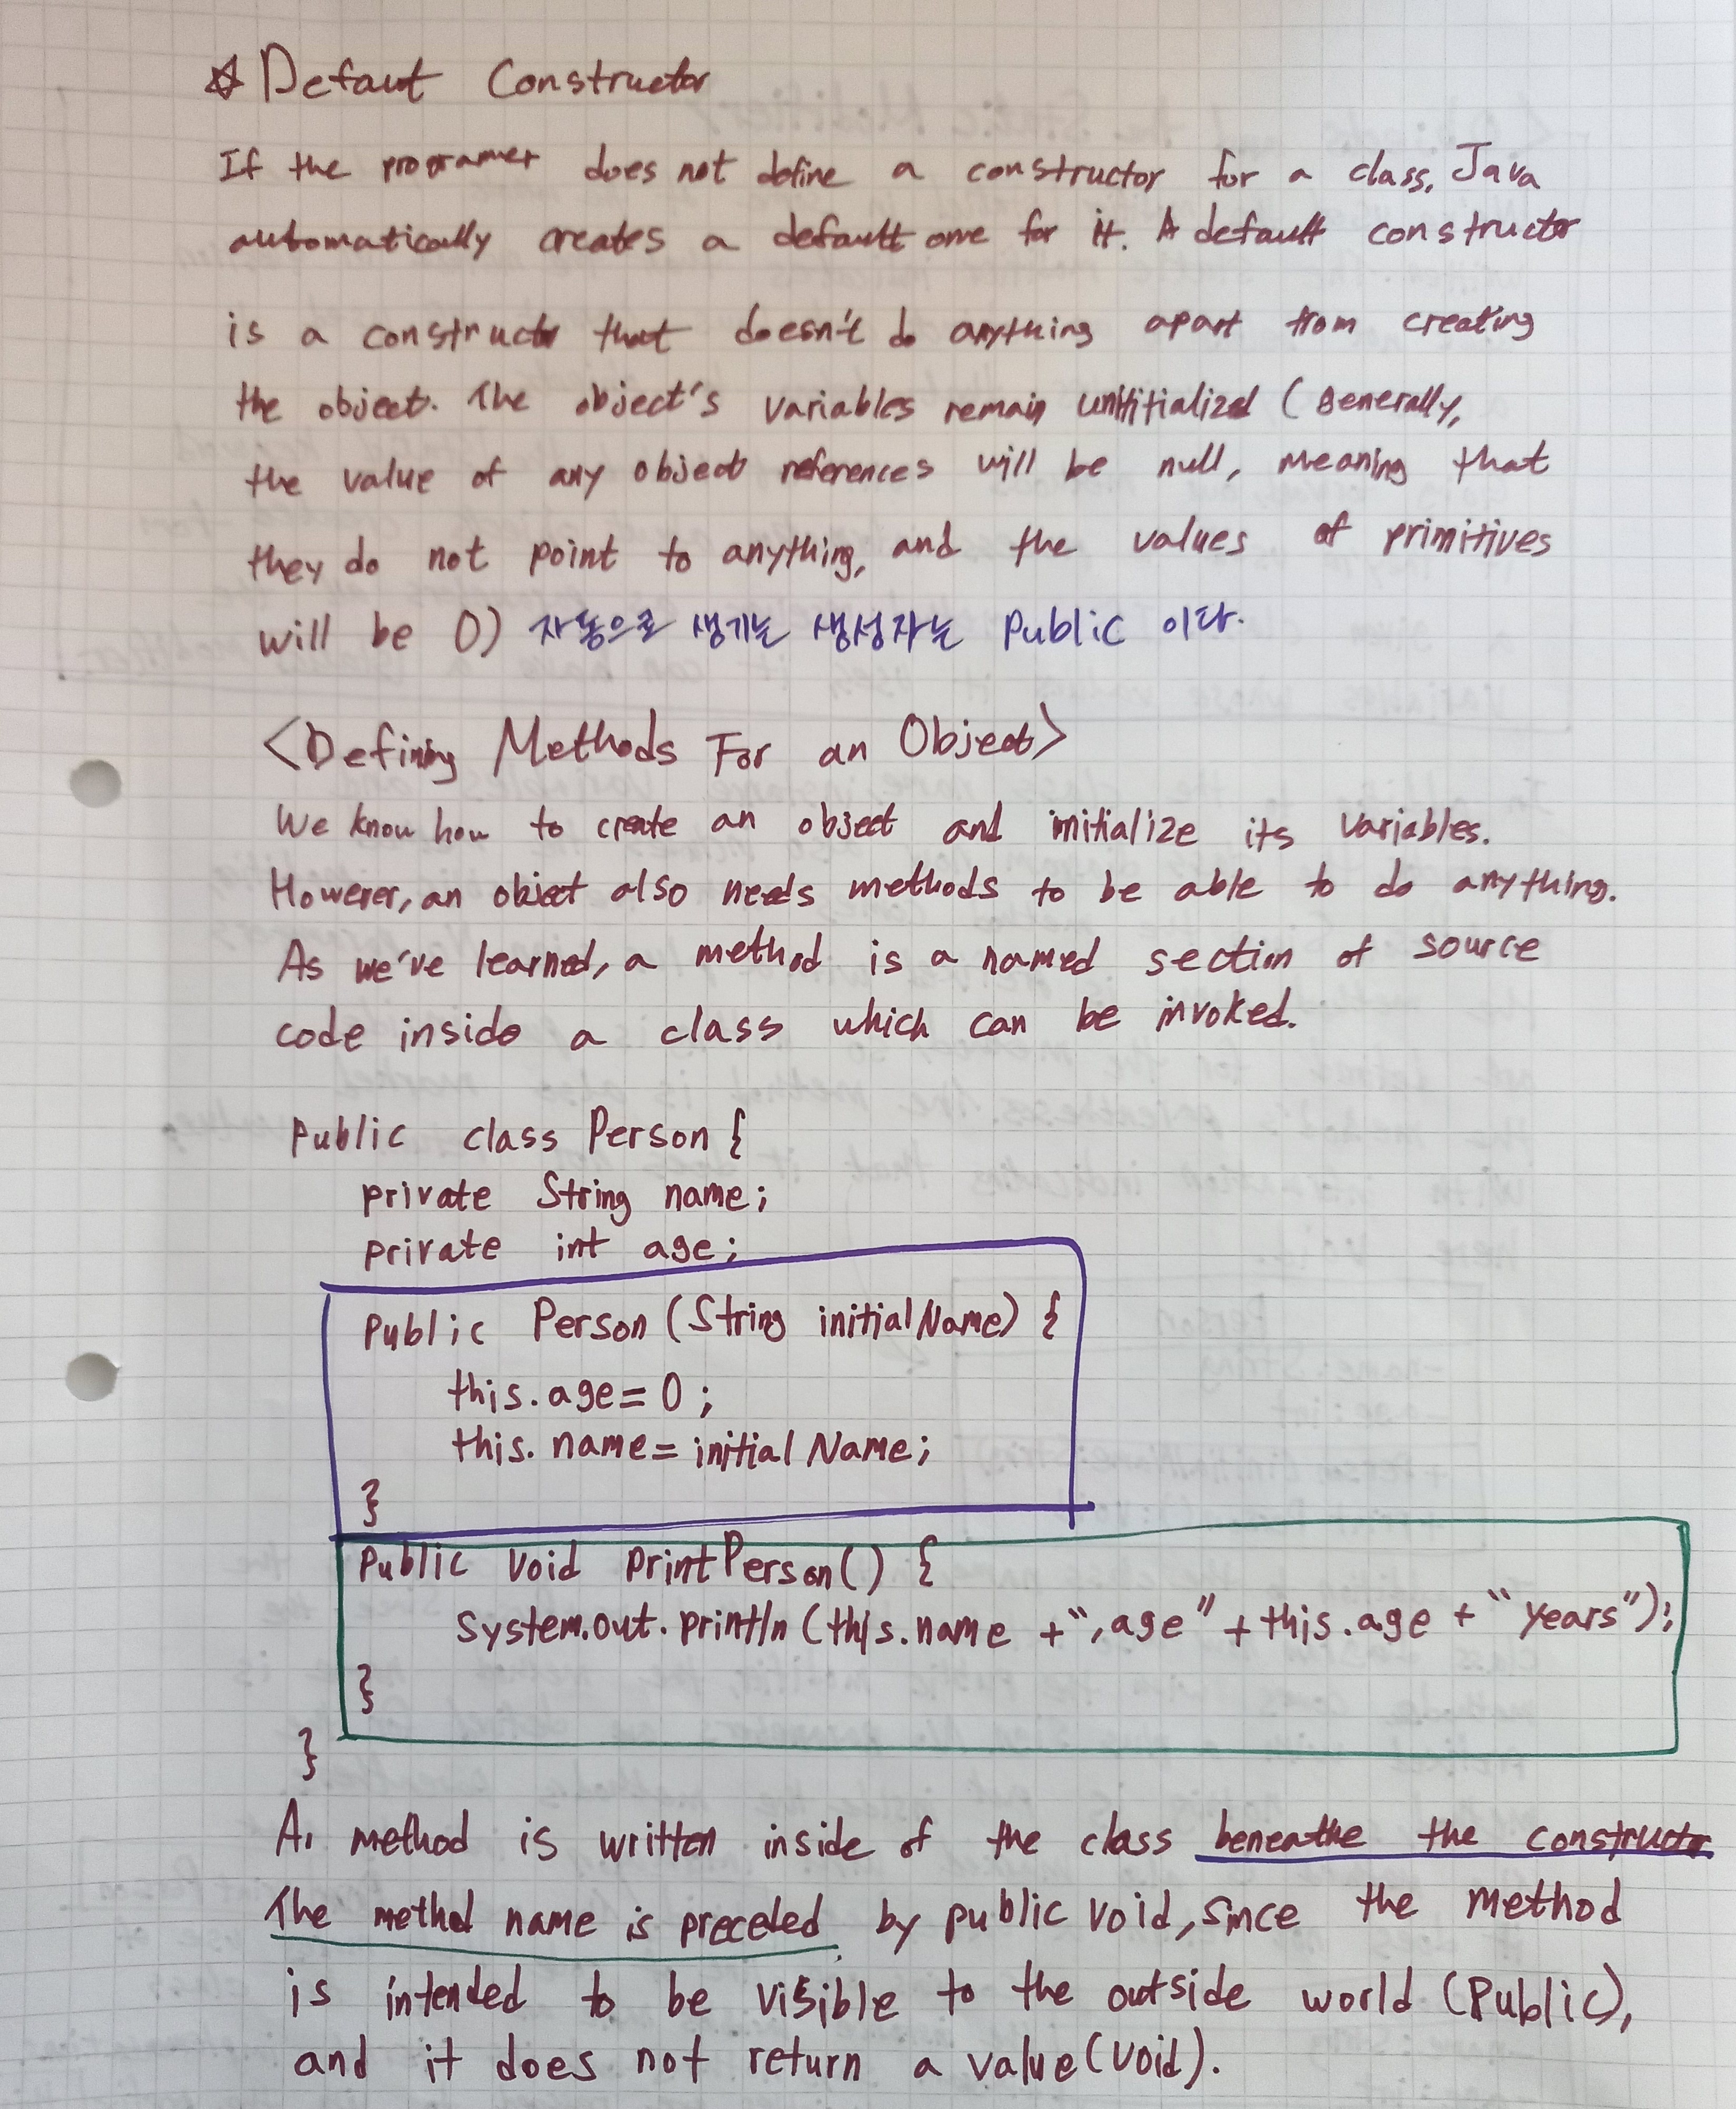 ☆ Defaut Constructor
If the programer does not define a constructor for a class, Java
automatically creates a default one for it. A default constructor
is a constructor that doesn't do anything apart from creating
the object. The object's variables remain unitialized (Generally,
the value of any object references will be null, meaning that
they do not point to anything, and the values of primitives
will be 0) 자동으로 생기는 생성자는 Public 이다.
<Defining Methods For an Object>
We know how to create an object and initialize its variables.
However, an object also needs methods to be able to do anything.
As we've learned, a method is a named section of source
code inside a class which can be invoked.
Public class Person {
private String name;
private int age;
Public Person (String initialName) {
this.age = 0;
this.name = initialName;
}
Public void printPerson() {
System.out.println (this.name + ", age" + this.age + "years");
}
}
A method is written inside of the class beneathe the constructor
The method name is preceded by public void, since the method
is intended to be visible to the outside world (Public),
and it does not return a value (void).